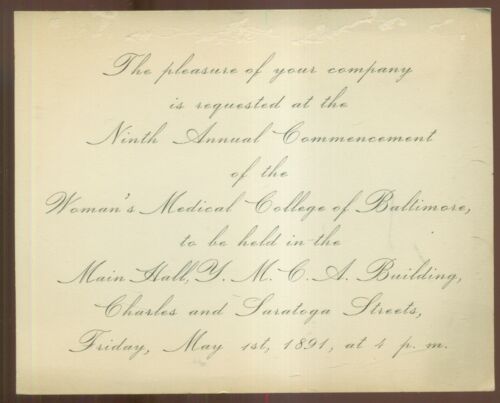 The pleasure of your company
is requested at the
Ninth Annual Commencement
of the
Woman's Medical College of Baltimore,
to be held in the
Main Hall, Y. M. C. A. Building,
Charles and Saratoga Streets,
Friday, May 1st, 1891, at 4 p. m.